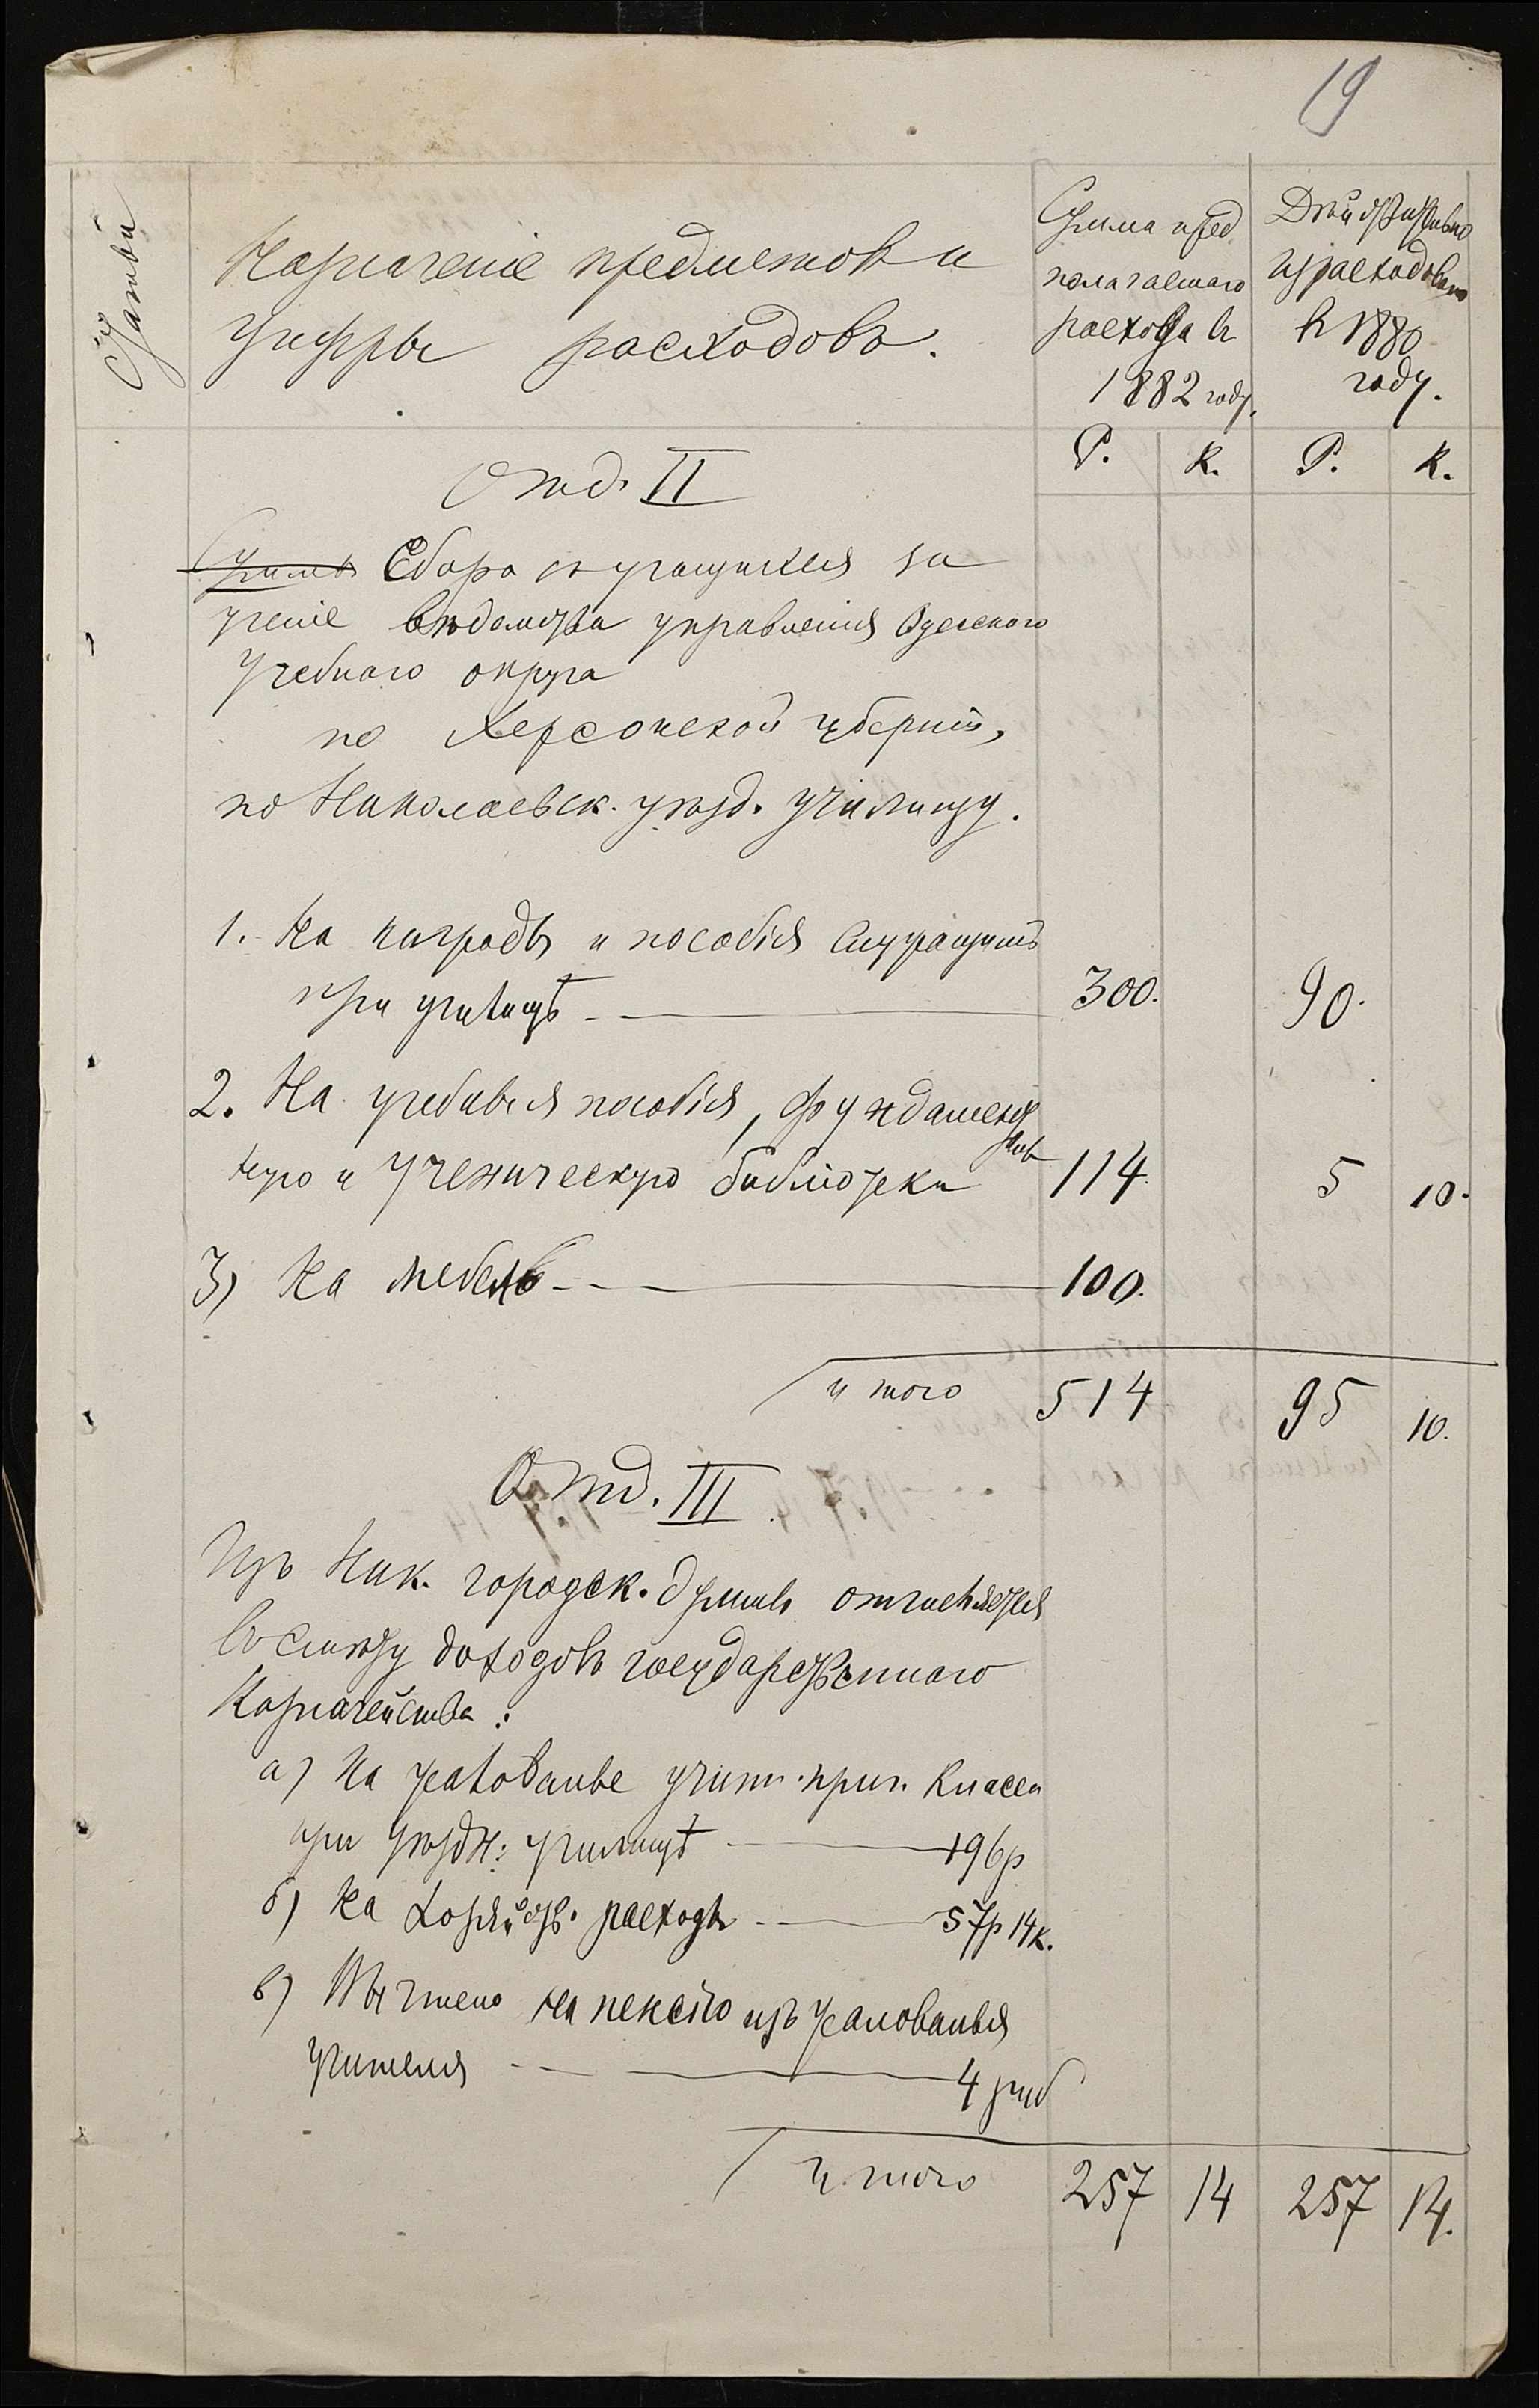 19
Статьи
Назначеніе предметовъ и
цифры расходовъ.
Сумма пред
полагаемаго
расхода въ
1882 году.
Дѣйствительно
израсходовано
въ 1880
году.
Р. К. Р. К.
Отд. II
Суммъ Сбора съ учащихся за
ученіе вѣдомства управленія Одесскаго
Учебнаго округа
по Херсонской губерніи,
по Николаевск. уѣзд. училищу.
1. На награды и пособія служащимъ
при училищѣ 300. 90.
2. На учебныя пособія, фундамент
аль
ную и ученическую библіотеки 114. 5 10.
3) На мебель 100.
итого 514 95 10.
Отд. III
Изъ Ник. городск. думы отчисляется
въ смѣту доходовъ государственнаго
Казначейства:
а) На жалованье учит. приг. класса
при уѣздн: училищѣ 196р
б) На хозяйств. расходы 57р 14к.
в) Вычтено на пенсію изъ жалованья
учителя 4 руб
итого 257 14 257 14.